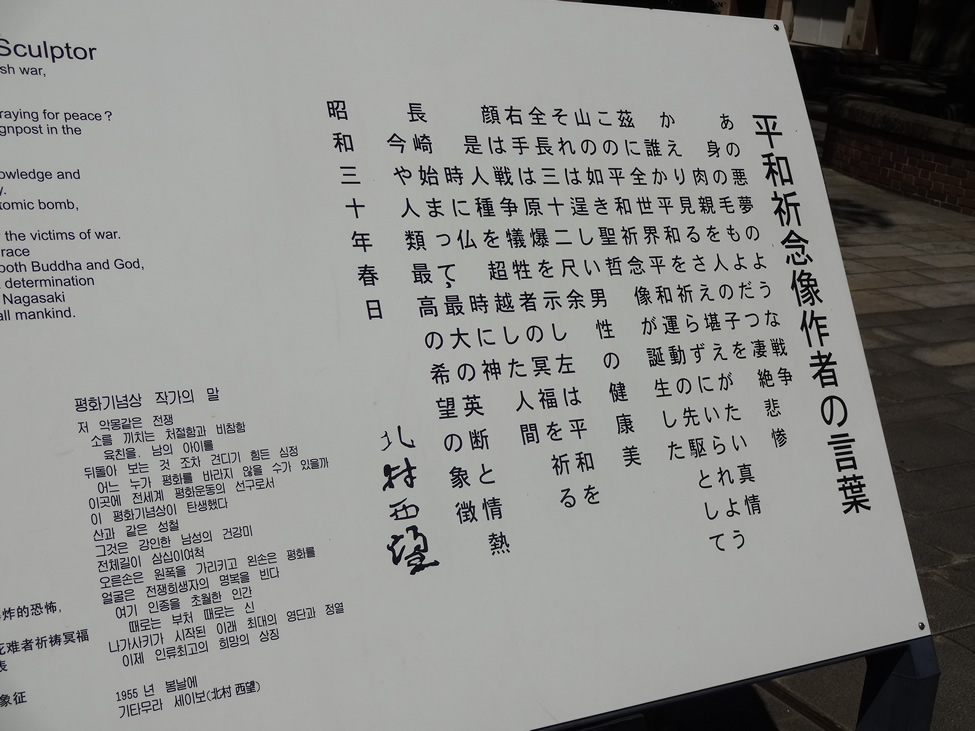 平和祈念像作者の言葉
あの悪夢のような戦争
身の毛もよだつ凄絶悲惨
肉親を人の子を
かえり見るさえ堪えがたい真情
誰か平和を祈らずにいられよう
茲に全世界平和運動の先駆として
この平和祈念像が誕生した
山の如き聖哲
それは逞しい男性の健康美
全長三十二尺余
右手は原爆を示し左は平和を
顔は戦争犠牲者の冥福を祈る
是人種を超越した人間
時に仏時に神
長崎始まって最大の英断と情熱
今や人類最高の希望の象徴
昭和三十年春日
北村西望
Sculptor
sh war,
raying for peace?
gnpost in the
owledge and
y.
tomic bomb,
the victims of war.
race
both Buddha and God,
determination
Nagasaki
all mankind.
평화기념상 작가의 말
저 악몽같은 전쟁
소름 끼치는 처절함과 비참함
육친을, 남의 아이를
뒤돌아 보는 것 조차 견디기 힘든 심정
어느 누가 평화를 바라지 않을 수가 있을까
이곳에 전세계 평화운동의 선구로서
이 평화기념상이 탄생했다
산과 같은 성철
그것은 강인한 남성의 건강미
전체길이 삼십이여척
오른손은 원폭을 가리키고 왼손은 평화를
얼굴은 전쟁희생자의 명복을 빈다
여기 인종을 초월한 인간
때로는 부처 때로는 신
나가사키가 시작된 이래 최대의 영단과 정열
이제 인류최고의 희망의 상징
1955 년 봄날에
기타무라 세이보(北村 西望)
炸的恐怖,
死难者祈祷冥福
表
象征